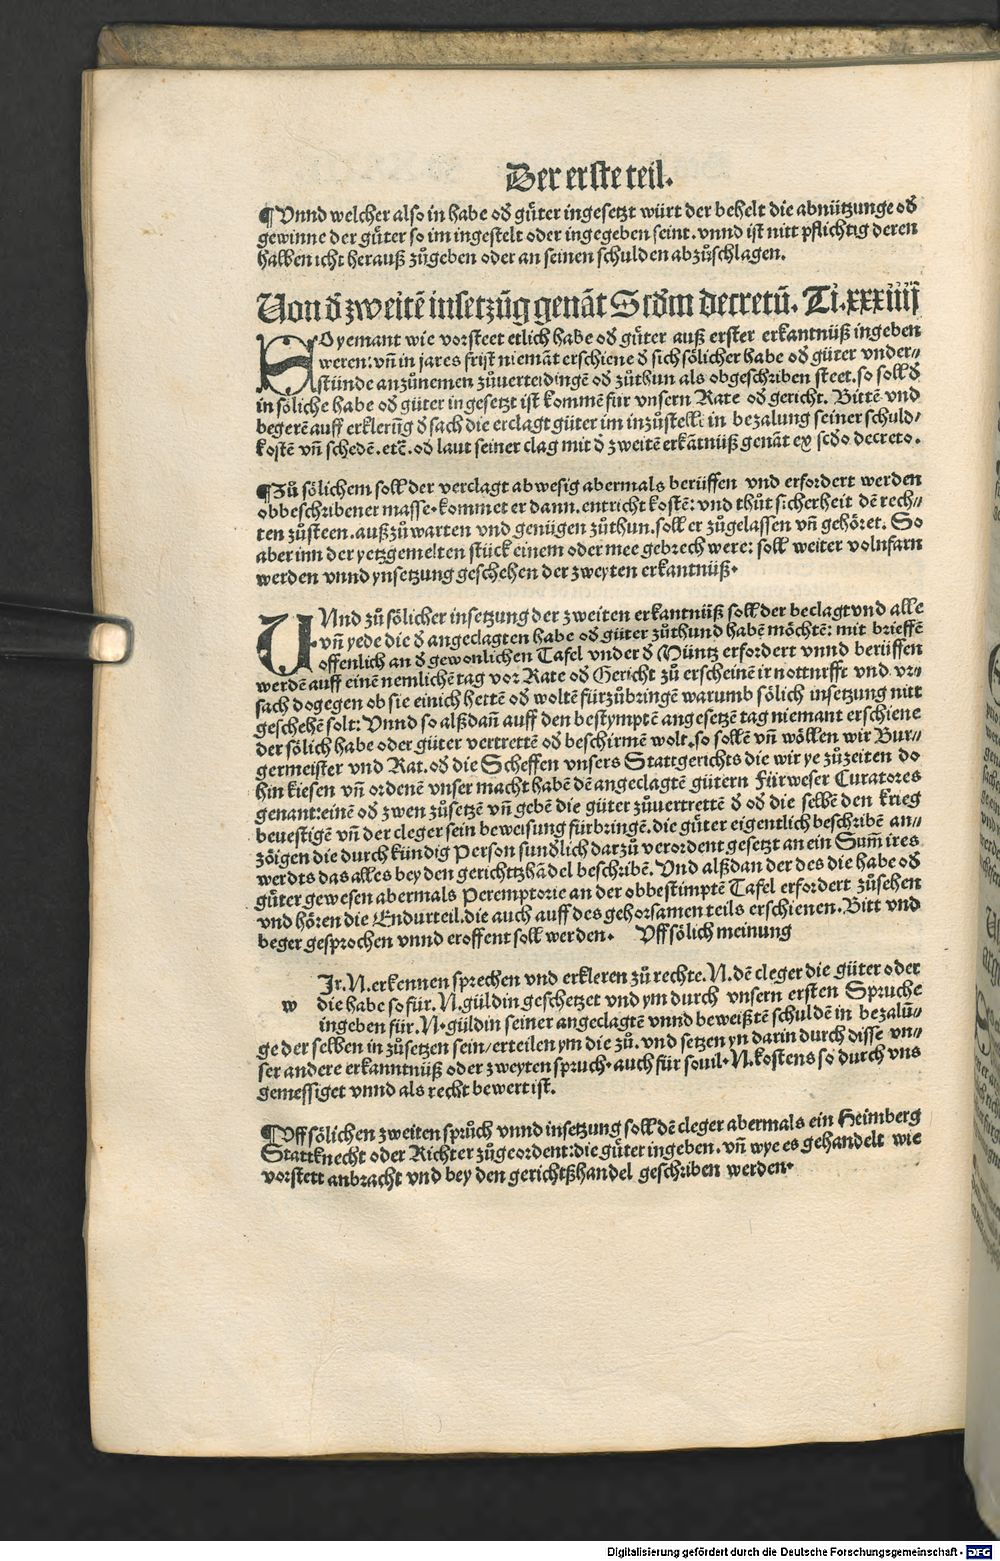 Der erste teil.
¶Vnnd welcher also in habe oď gůter ingesetzt würt der behelt die abnützunge oď
gewinne der gůter so im ingestelt oder ingegeben seint. vnnd ist nitt pflichtig deren
halben icht herauß zůgeben oder an seinen schulden abzůschlagen.
Von ď zweitē insetzūg genāt Scďm decretū. Ti. xxxiiij
SO yemant wie vorsteet etlich habe oď gůter auß erster erkantnüß ingeben
weren: vñ in jares frist niemāt erschiene ď sich sölicher habe oď gůter vnder⸗
stünde anzůnemen zůuerteidingē oď zůthun als obgeschriben steet. so soll ď
in söliche habe oď gůter ingesetzt ist kommē für vnsern Rate oď gericht. Bittē vnd
begerē auff erklerūg ď sach die erclagt gůter im inzůstellē in bezalung seiner schuld⸗
kostē vñ schedē. etc̄. oď laut seiner clag mit ď zweitē erkātnüß genāt ex scďo decreto.
¶Zů sölichem soll der verclagt abwesig abermals berüffen vnd erfordert werden
obbeschribener masse. kommet er dann. entricht kostē: vnd thůt sicherheit dē rech⸗
ten zůsteen. auß zů warten vnd genügen zůthun. soll er zůgelassen vñ gehöret. So
aber inn der yetzgemelten stück einem oder mee gebrech were: soll weiter volnfarn
werden vnnd ynsetzung geschehen der zweyten erkantnüß.
VNnd zů sölicher insetzung der zweiten erkantnüß soll der beclagt vnd alle
vñ yede die ď angeclagten habe oď gůter zůthund habē möchtē: mit brieffē
offenlich an ď gewonlichen Tafel vnder ď Müntz erfordert vnnd berüffen
werdē auff einē nemlichē tag vor Rate oď Gericht zů erscheinē ir nottnrfft vnd vr⸗
sach dogegen ob sie einich hettē oď woltē fürzůbringē warumb sölich insetzung nitt
geschehē solt: Vnnd so alßdañ auff den bestymptē angesetzē tag niemant erschiene
der sölich habe oder gůter vertrettē oď beschirmē wolt. so sollē vñ wöllen wir Bur⸗
germeister vnd Rat. oď die Scheffen vnsers Stattgerichts die wir ye zůzeiten do
hin kiesen vñ ordenē vnser macht habē dē angeclagtē gütern Fürweser Curatores
genant: einē oď zwen zůsetzē vñ gebē die güter zůuertrettē ď oď die selbē den krieg
beuestigē vñ der cleger sein beweisung fürbringē. die gůter eigentlich beschribē an⸗
zöigen die durch kündig Person sunďlich darzů verordent gesetzt an ein Sum̄ ires
werdts das alles bey den gerichttzhādel beschribē. Vnd alßdan der des die habe oď
gůter gewesen abermals Peremptorie an der obbestimptē Tafel erfordert zůsehen
vnd hören die Endurteil. die auch auff des gehorsamen teils erschienen. Bitt vnd
beger gesprochen vnnd eroffent soll werden. Vff sölich meinung
Ir. N. erkennen sprechen vnd erkleren zů rechte. N. dē cleger die güter oder
w die habe so für. N. güldin geschetzet vnd ym durch vnsern ersten Spruche
ingeben für. N. güldin seiner angeclagtē vnnd beweißtē schuldē in bezalū⸗
ge der selben in zůsetzen sein/ erteilen ym die zů. vnd setzen yn darin durch disse vn⸗
ser andere erkanntnüß oder zweyten spruch. auch für souil. N. kostens so durch vns
gemessiget vnnd als recht bewert ist.
¶Vff sölichen zweiten sprůch vnnd insetzung soll dē cleger abermals ein Heimberg
Stattknecht oder Richter zůgeordent: die gůter ingeben. vñ wye es gehandelt wie
vorstett anbracht vnd bey den gerichtßhandel geschriben werden.
Digitalisierung gefördert durch die Deutsche Forschungsgemeinschaft - DFG